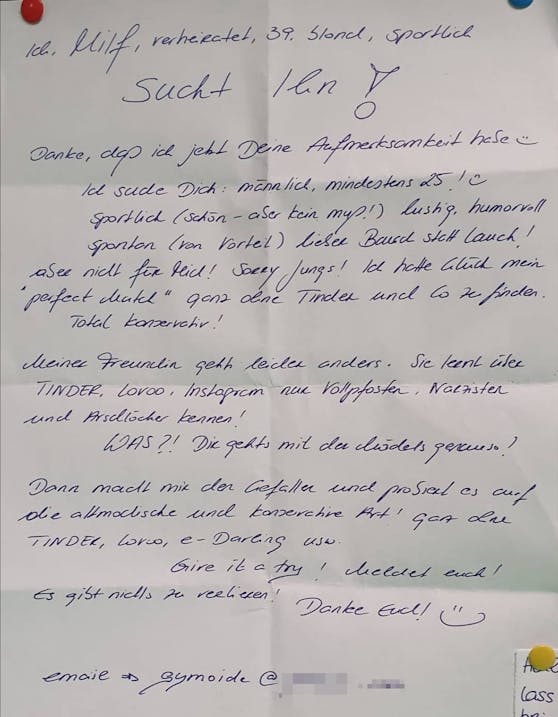 Ich, Milf, verheiratet, 39, blond, sportlich
Sucht Ihn!
Danke, daß ich jetzt Deine Aufmerksamkeit habe ☺
Ich suche Dich: männlich, mindestens 25! ☺
sportlich (schön - aber kein muß!) lustig, humorvoll
spontan (von Vorteil) lieber Bauch statt Lauch!
aber nicht für Mich! Sorry Jungs! Ich hatte Glück mein
"perfect Match" ganz ohne Tinder und Co zu finden.
Total konservativ!
Meiner Freundin geht leider anders. Sie lernt über
TINDER, Lovoo, Instagram nur Vollpfosten, Narzisten
und Arschlöcher kennen!
WAS?! Dir gehts mit den Mädels genauso!
Dann macht mir den Gefallen und probiert es auf
die altmodische und konservative Art! ganz ohne
TINDER, Lovoo, e-Darling usw.
Give it a try! Meldet euch!
Es gibt nichts zu verlieren!
Danke Euch! ☺
email ⇒ gymoide@
lass